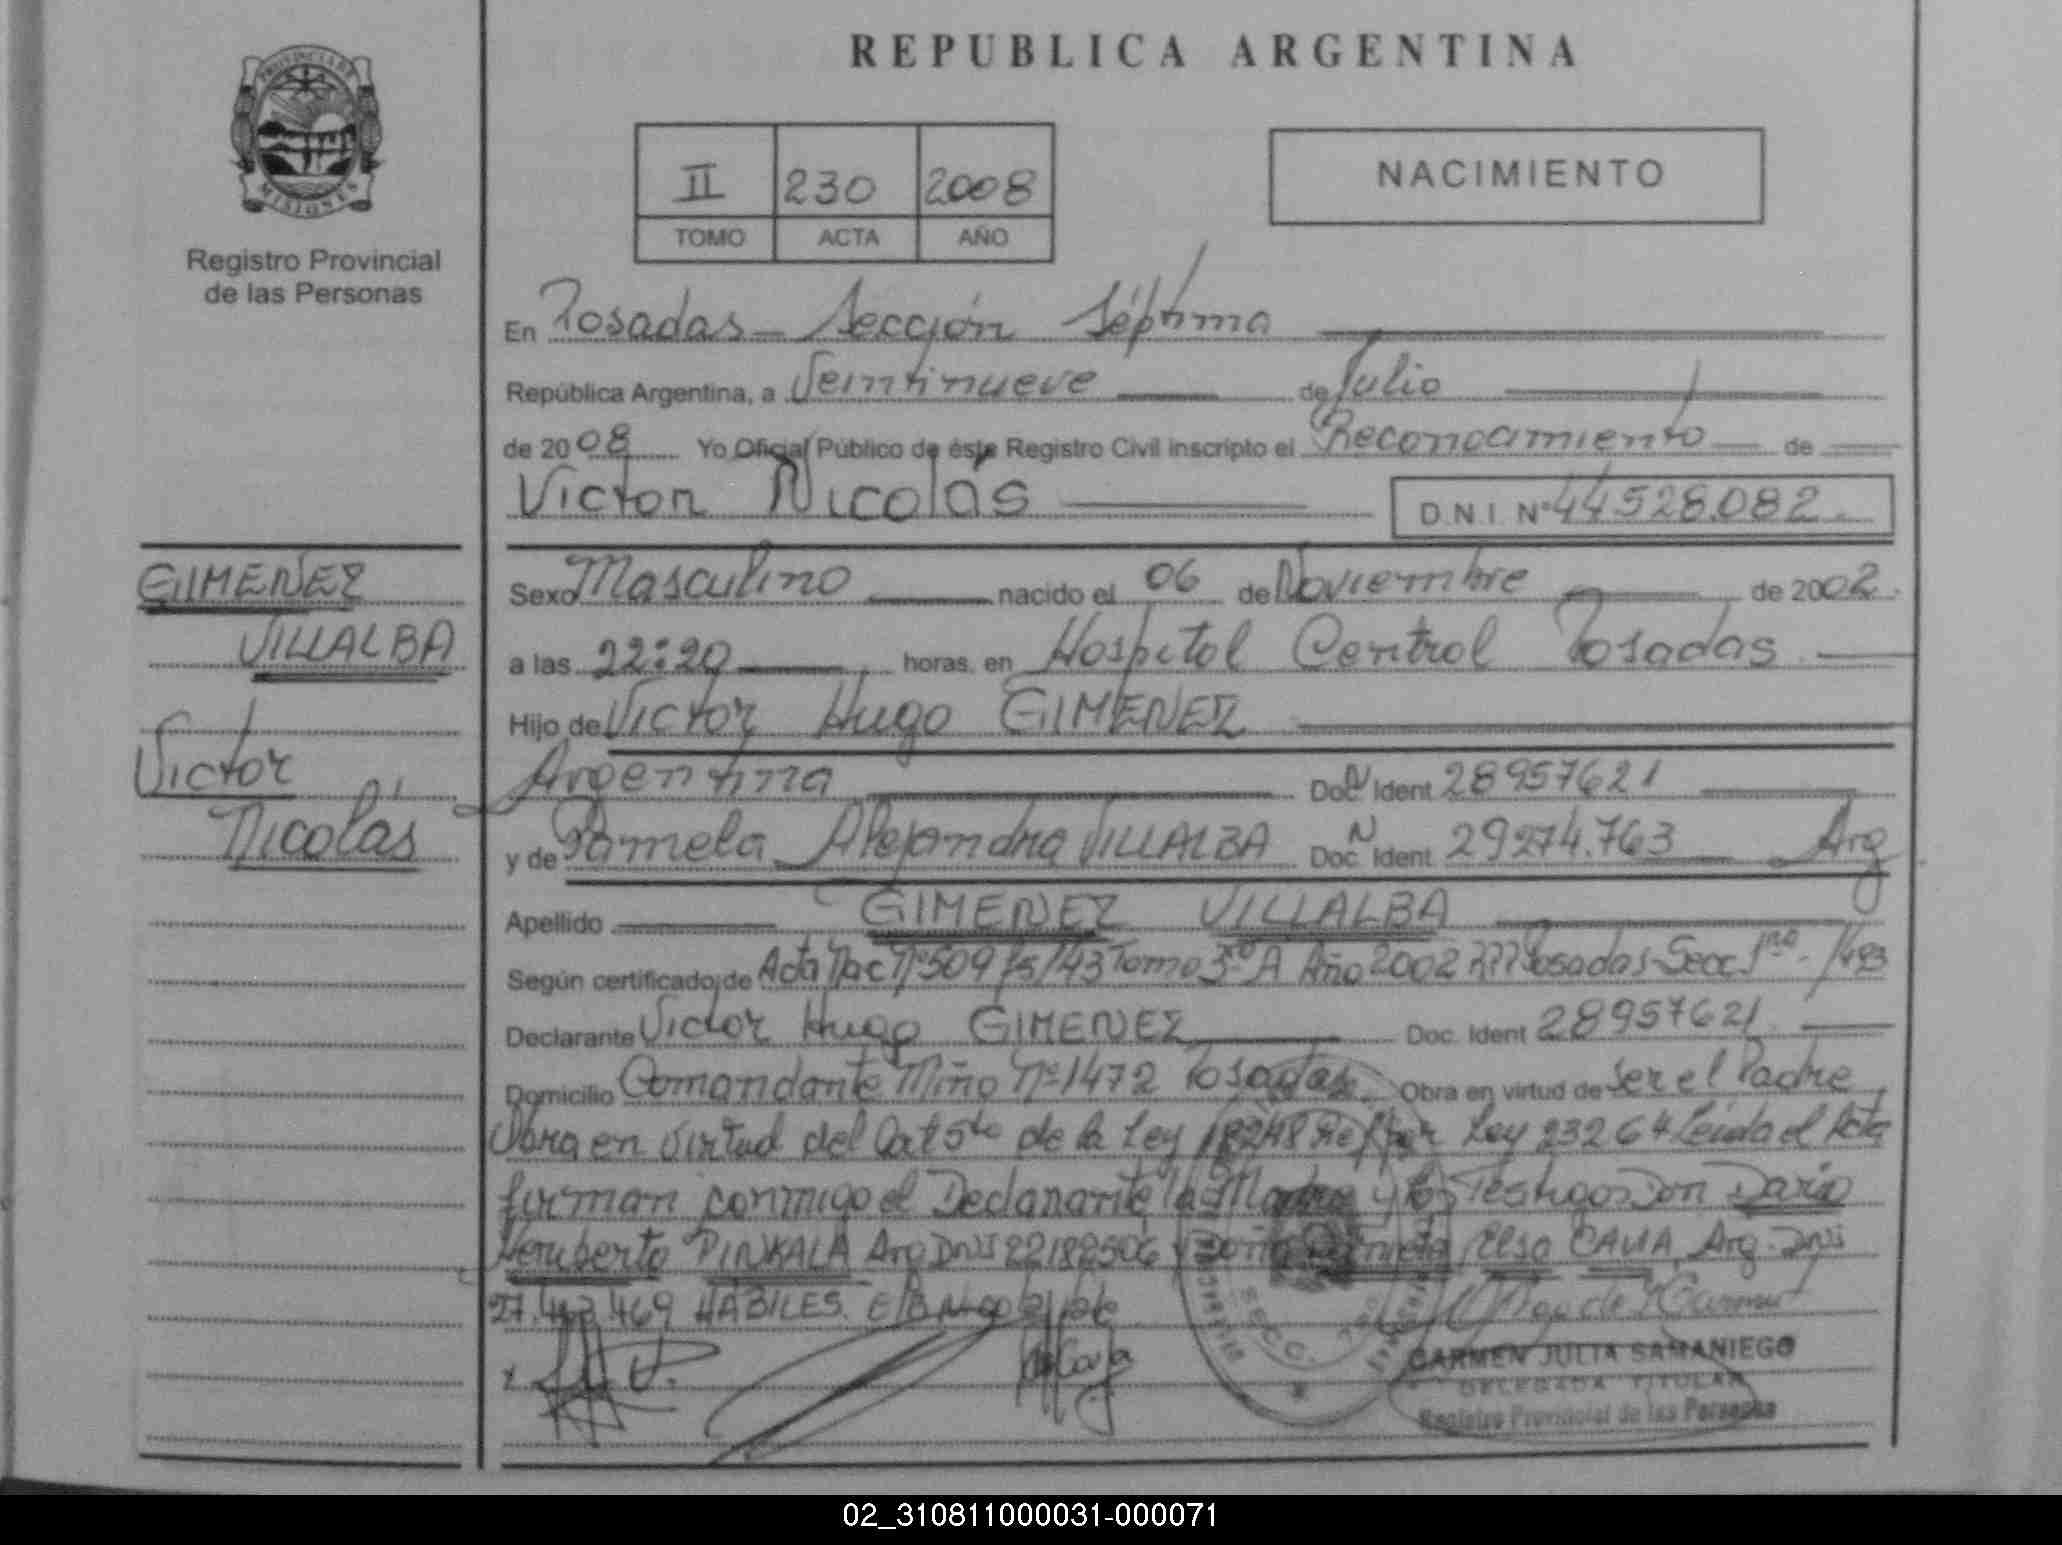 PROVINCIA DE
MISIONES
Registro Provincial
de las Personas
REPUBLICA ARGENTINA
II 230 2008
TOMO ACTA AÑO
NACIMIENTO
En Posadas Sección Séptima
República Argentina, a Veintinueve de Julio
de 2008 Yo Oficial Público de éste Registro Civil inscripto el Reconocimiento de
Victor Nicolás D.N.I. Nº 44528.082
GIMENEZ
VILLALBA
Victor
Nicolás
Sexo Masculino nacido el 06 de Noviembre de 2002.
a las 22:20 horas, en Hospital Central Posadas
Hijo de Victor Hugo GIMENEZ
Argentina Doc. Ident 28957621
y de Pamela Alejandra VILLALBA Doc. Ident 29274.763 Arg
Apellido GIMENEZ VILLALBA
Según certificado de Acta Nac Nº 509 Tomo 3º A Año 2002 Posadas Secc 1ra
Declarante Victor Hugo GIMENEZ Doc. Ident 28957621
Domicilio Comandante Miño Nº 1472 Posadas Obra en virtud de ser el Padre
Obra en virtud del Art 5to de la Ley 18248 Ref por Ley 23264 Leida el Acta
firman conmigo el Declarante la Madre y los Testigos Don Dario
Heriberto PINKALA Arg DNI 22182506 Elsa Arg. DNI
469 HABILES.
CARMEN JULIA SAMANIEGO
DELEGADA TITULAR
Registro Provincial de las Personas
02_310811000031-000071